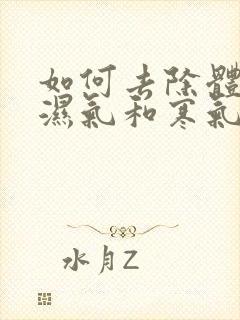 如何去除體
濕氣和寒氣
水月Z